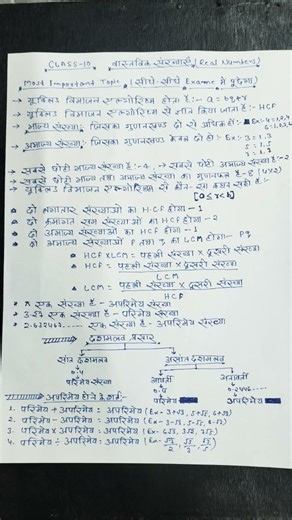 CLASS-10 वास्तविक संख्याएँ (Real Numbers)
Most Important Topic (सीधे-सीधे Exam में पूछेगा)
→ यूक्लिड विभाजन एल्गोरिथ्म होता है :- a = bq+r
→ यूक्लिड विभाजन एल्गोरिथ्म से ज्ञात किया जाता है :- HCF
→ भाज्य संख्या :- जिसका गुणनखण्ड दो से अधिक हो :-
→ अभाज्य संख्या :- जिसका गुणनखण्ड केवल दो हो :- Ex:- 2 = 1,2
3 = 1,3
→ सबसे छोटी भाज्य संख्या है :- 4, → सबसे छोटी अभाज्य संख्या है :- 2
→ सबसे छोटी भाज्य तथा अभाज्य संख्या का गुणनफल है - 8 (4×2)
→ यूक्लिड विभाजन एल्गोरिथ्म से कौन-सा कथन सही है :-
[0≤r<b]
दो लगातार संख्याओं का HCF होगा - 1
दो क्रमागत सम संख्याओं का HCF होगा - 2
दो अभाज्य संख्याओं का HCF होगा - 1
दो अभाज्य संख्याओं P तथा q का LCM होगा :- Pq
HCF×LCM = पहली संख्या × दूसरी संख्या
HCF = पहली संख्या × दूसरी संख्या
LCM
LCM = पहली संख्या × दूसरी संख्या
HCF
→ π एक संख्या है - अपरिमेय संख्या
एक संख्या है - अपरिमेय संख्या
दशमलव प्रसार
सांत दशमलव असांत दशमलव
परिमेय संख्या
परिमेय अपरिमेय
1. परिमेय + अपरिमेय = अपरिमेय (Ex- 3+√2, 5+√3, 6+√2)
2. परिमेय - अपरिमेय = अपरिमेय
3. परिमेय × अपरिमेय = अपरिमेय
4. परिमेय ÷ अपरिमेय = अपरिमेय